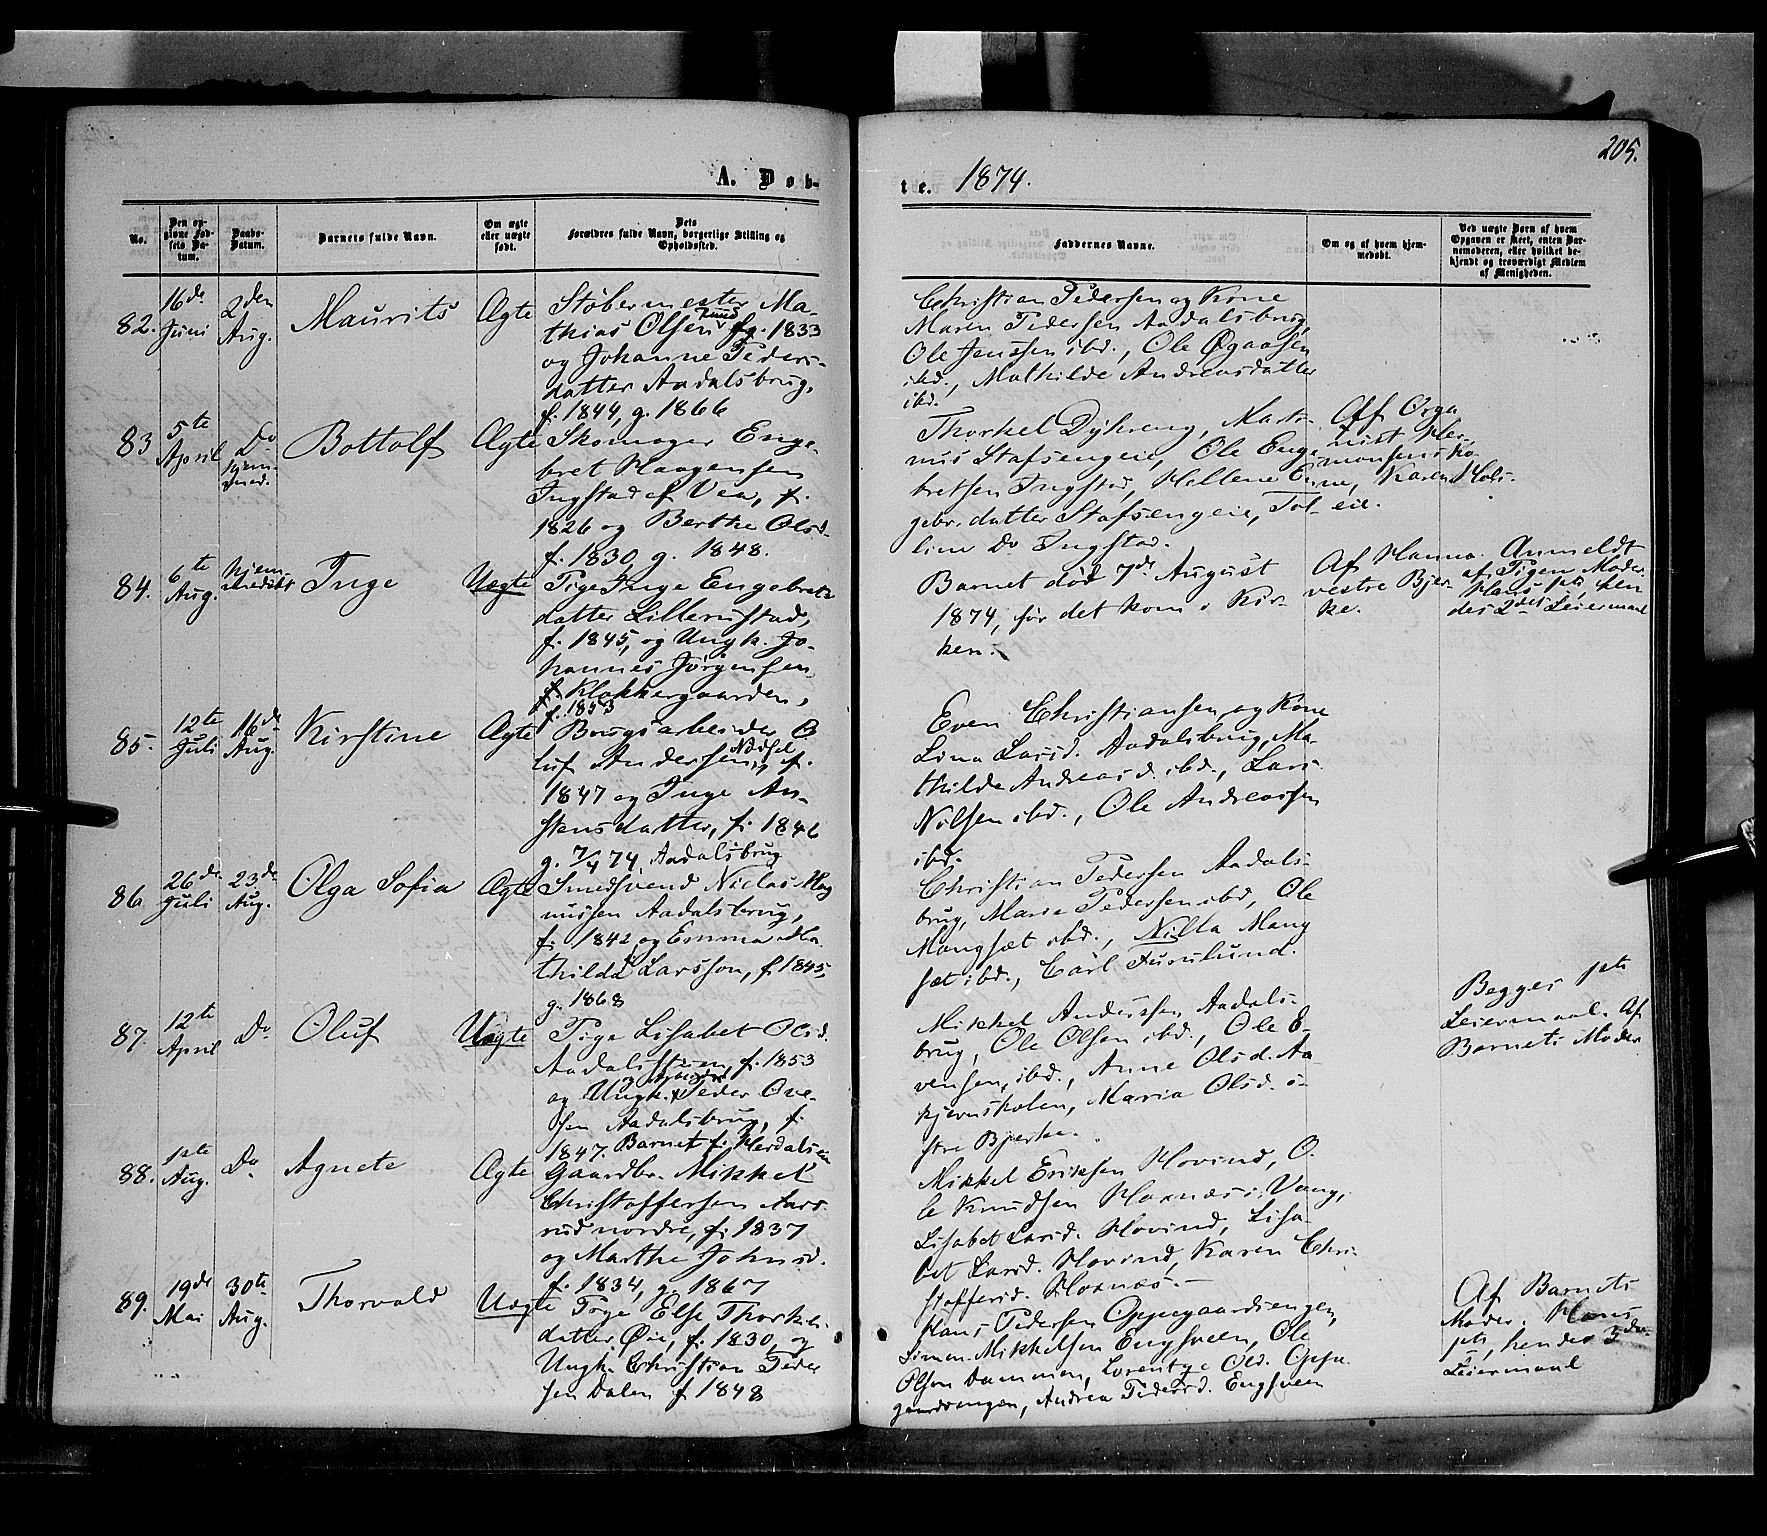 205.
A. Døb-
te. 1874.
No.
Den opgivne Fødsels Datum.
Daabs-Datum.
Barnets fulde Navn.
Om ægte eller uægte født.
Dets Forældres fulde Navn, borgerlige Stilling og Opholdssted.
Faddernes Navne.
Om og af hvem hjemmedøbt.
Ved uægte Børn af hvem Opgaven er skeet, enten Barnemoderen, eller hvilket bekjendt og troværdigt Medlem af Menigheden.
82. 16de Juni 2den Aug. Maurits Ægte
Støbermester Ma-
thias Olsen f. 1833
og Johanne Peders-
datter Aadalsbrug,
f. 1844, g. 1866
Christian Pedersen og Kone
Maren Pedersen Aadalsbrug,
Ole Jenssen ibd., Ole Øgaasen
ibd., Mathilde Andreasdatter
ibd.
83 5te April Do hjemmed. Bottolf Ægte
Skomager Enge-
bret Haagensen
Ingstad af Vea, f.
1826 og Berthe Olsd.
f. 1830, g. 1848.
Thorkel Dyhreng, Marti-
nus Stafsengeie, Ole Enge-
bretsen Ingstad, Hellene En-
gebr.datter Stafsengeie, Tol-
line Do Ingstad.
Af Orga
nist Her-
monsens Ko-
ne, Karen Hols-
eie.
84. 6te Aug. hjemmedøbt Inge Uægte
Pige Inge Engebrets
datter Lillerustad,
f. 1845, og Ungk. Jo-
hannes Jörgensen
Klokkergaarden,
f. 1853
Barnet död 7de August
1874, før det kom i Kir-
ken.
Af Hanna
vestre Bjer-
ke.
Anmeldt
af Pigen Moder.
Hans 1ste, hen
des 2det Leiermaal
85. 12te Juli 16de Aug. Kirstine Ægte
Brugsarbeider O
luf Andersen Næsset, f.
1847 og Inge An-
stensdatter, f. 1846
g. 7/4 74, Aadalsbrug
Even Christiansen og Kone
Lina Larsd. Aadalsbrug, Ma-
thilde Andreasd. ibd., Lars
Nilsen ibd., Ole Andreassen
ibd.
86 26de Juli 23de Aug. Olga Sofia Ægte
Smedsvend Niclas Mag
nussen Aadalsbrug,
f. 1842 og Emma Ma-
thilda Larsson, f. 1845,
g. 1868
Christian Pedersen Aadals-
brug, Marie Pedersen ibd., Ole
Mangsæt ibd., Nilla Mang
sæt ibd., Carl Furulund.
87. 12te April Do Oluf Uægte
Pige Lisabet Olsd.
f. 1853
og Ungk. Peder Ove-
sen Aadalsbrug, f.
1847. Barnet f.
Mikkel Anderssen Aadals-
brug, Ole Olsen ibd., Ole E-
vensen ibd., Anne Olsd. Aa
kjernsholen, Maria Olsd. ö-
stre Bjerke.
Begges 1ste
Leiermaal. Af
Barnets Moder
88. 1ste Aug. Do Agnete Ægte
Gaardbr. Mikkel
Christoffersen Aars-
rud nordre, f. 1837
og Marthe Johnsd.
f. 1834, g. 1867
Mikkel Eriksen Hovind, O-
le Knudsen Hornæs i Vang,
Lisabet Larsd. Hovind, Lisa-
bet Larsd. Hovind, Karen Chri-
stoffersd. Hornæs.
89. 19de Mai 30te Aug. Thorvald Uægte
Pige Else Thorkels-
datter Øie, f. 1830, og
Ungk. Christian Peder
sen Dalen f. 1848
Hans Pedersen Oppegaardsengen,
Simen Mikkelsen Engsveen, Ole
Olsen Dammen, Lorentze Olsd. Oppe
gaardsengen, Andrea Pedersd. Engsveen
Af Barnets
Moder. Hans
1ste, hendes 3die
Leiermaal